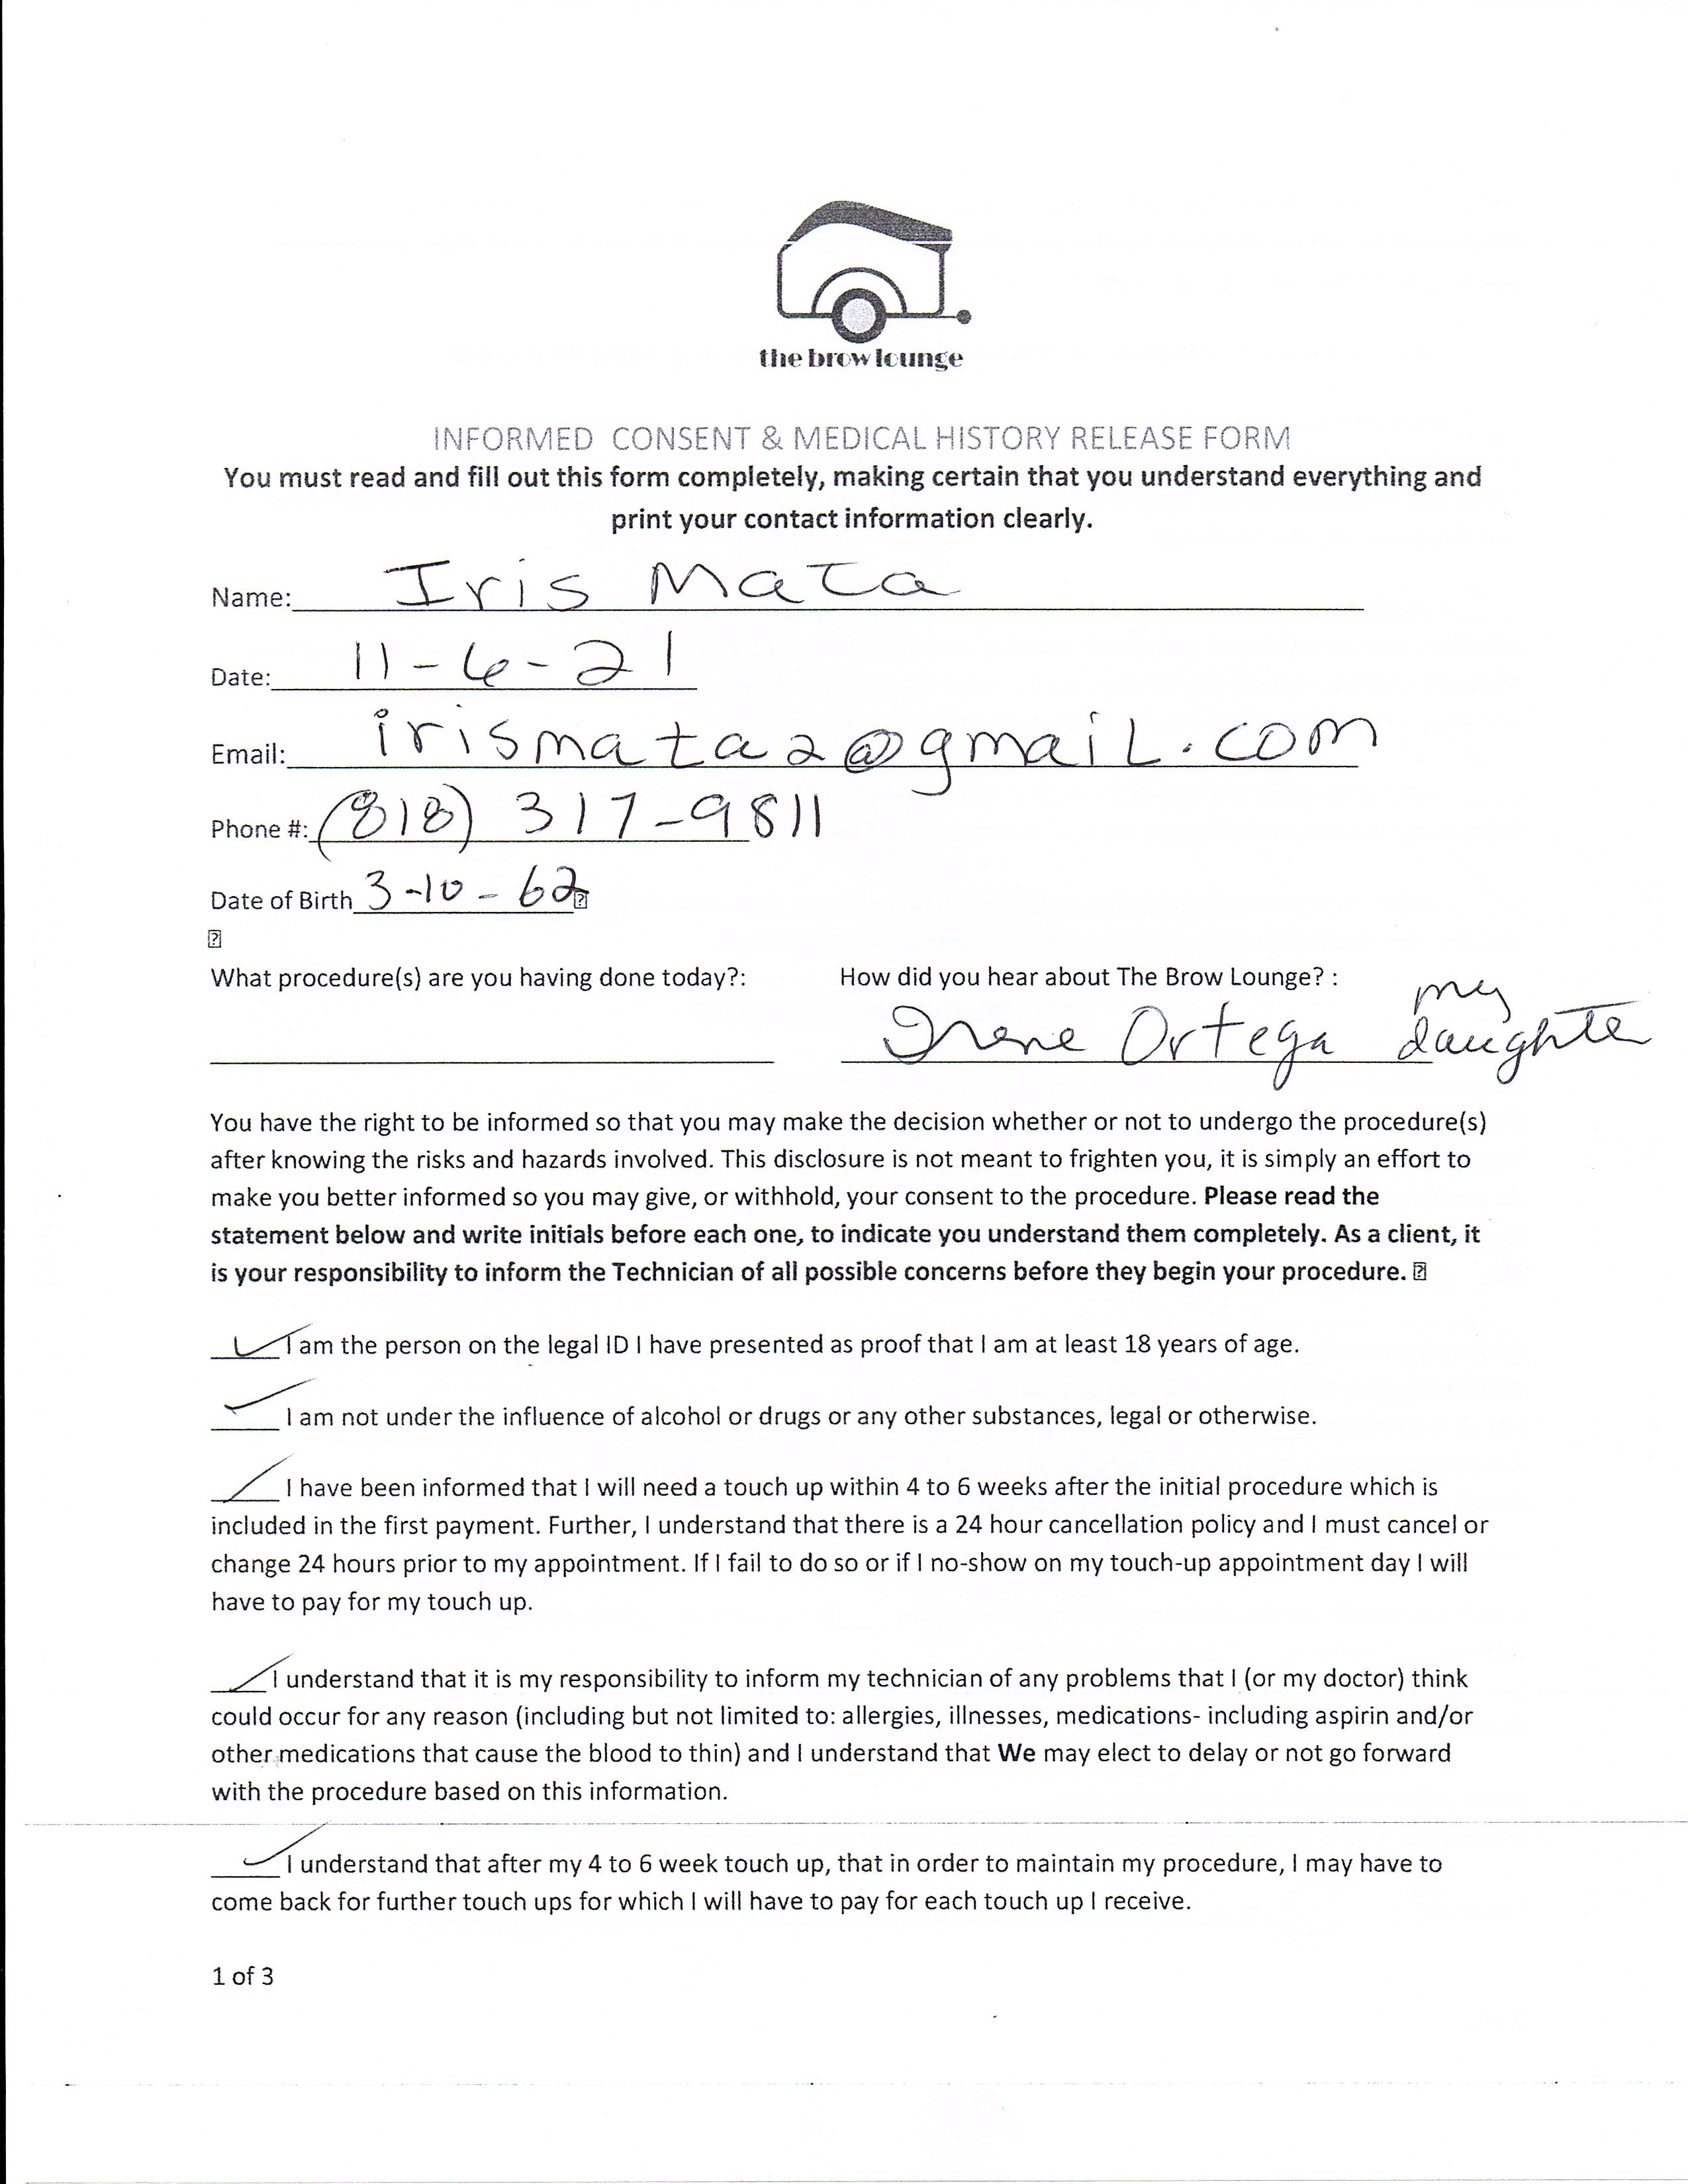 the brow lounge
INFORMED CONSENT & MEDICAL HISTORY RELEASE FORM
You must read and fill out this form completely, making certain that you understand everything and
print your contact information clearly.
Name: Iris Mata
Date: 11-6-21
Email: irismata2@gmaiL.com
Phone #: (818) 317-9811
Date of Birth 3-10-62
What procedure(s) are you having done today?: How did you hear about The Brow Lounge? :
my
Irene Ortega daughte
You have the right to be informed so that you may make the decision whether or not to undergo the procedure(s)
after knowing the risks and hazards involved. This disclosure is not meant to frighten you, it is simply an effort to
make you better informed so you may give, or withhold, your consent to the procedure. Please read the
statement below and write initials before each one, to indicate you understand them completely. As a client, it
is your responsibility to inform the Technician of all possible concerns before they begin your procedure.
I am the person on the legal ID I have presented as proof that I am at least 18 years of age.
I am not under the influence of alcohol or drugs or any other substances, legal or otherwise.
I have been informed that I will need a touch up within 4 to 6 weeks after the initial procedure which is
included in the first payment. Further, I understand that there is a 24 hour cancellation policy and I must cancel or
change 24 hours prior to my appointment. If I fail to do so or if I no-show on my touch-up appointment day I will
have to pay for my touch up.
I understand that it is my responsibility to inform my technician of any problems that I (or my doctor) think
could occur for any reason (including but not limited to: allergies, illnesses, medications- including aspirin and/or
other medications that cause the blood to thin) and I understand that We may elect to delay or not go forward
with the procedure based on this information.
I understand that after my 4 to 6 week touch up, that in order to maintain my procedure, I may have to
come back for further touch ups for which I will have to pay for each touch up I receive.
1 of 3